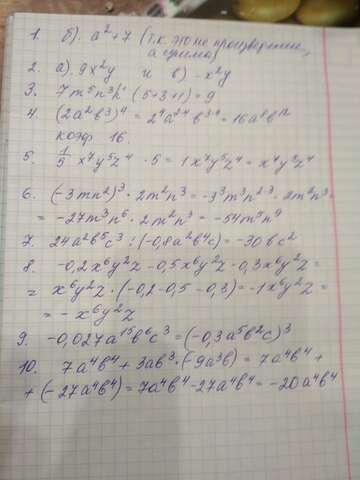 1. б). a² + 7 (т.к. это не произведение,
а сумма)
2. а). 9x²y и в) -x²y
3. 7m⁵n³k¹ (5+3+1) = 9
4. (2a²b³)⁴ = 2⁴a²·⁴b³·⁴ = 16a⁸b¹²
коэф 16.
5. 1/5 x⁴y⁸z⁴ · 5 = 1x⁴y⁸z⁴ = x⁴y⁸z⁴
6. (-3mn²)³ · 2m²n³ = -3³m³n²·³ · 2m²n³ =
= -27m³n⁶ · 2m²n³ = -54m⁵n⁹
7. 24a²b⁵c³ : (-0,8a²b⁴c) = -30bc²
8. -0,2x⁶y²z - 0,5x⁶y²z - 0,3x⁶y²z =
= x⁶y²z · (-0,2-0,5-0,3) = -1x⁶y²z =
= - x⁶y²z
9. -0,027a¹⁵b⁶c³ = (-0,3a⁵b²c)³
10. 7a⁴b⁴ + 3ab³ · (-9a³b) = 7a⁴b⁴ +
+ (-27a⁴b⁴) = 7a⁴b⁴ - 27a⁴b⁴ = -20a⁴b⁴